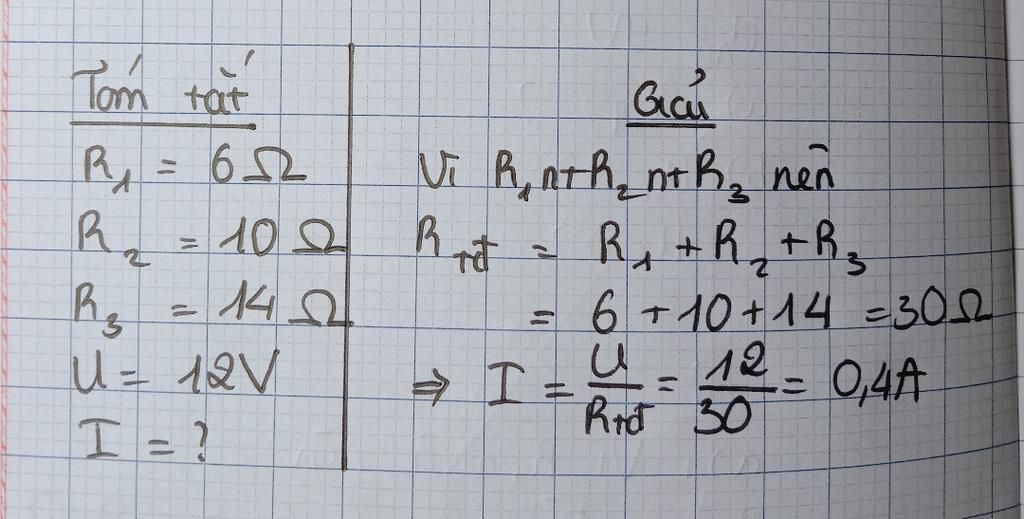 Tóm tắt
R₁ = 6Ω
R₂ = 10Ω
R₃ = 14Ω
U = 12V
I = ?
Giải
Vì R₁ nt R₂ nt R₃ nên
Rtđ = R₁ + R₂ + R₃
= 6 + 10 + 14 = 30Ω
⇒ I = U/Rtđ = 12/30 = 0,4A